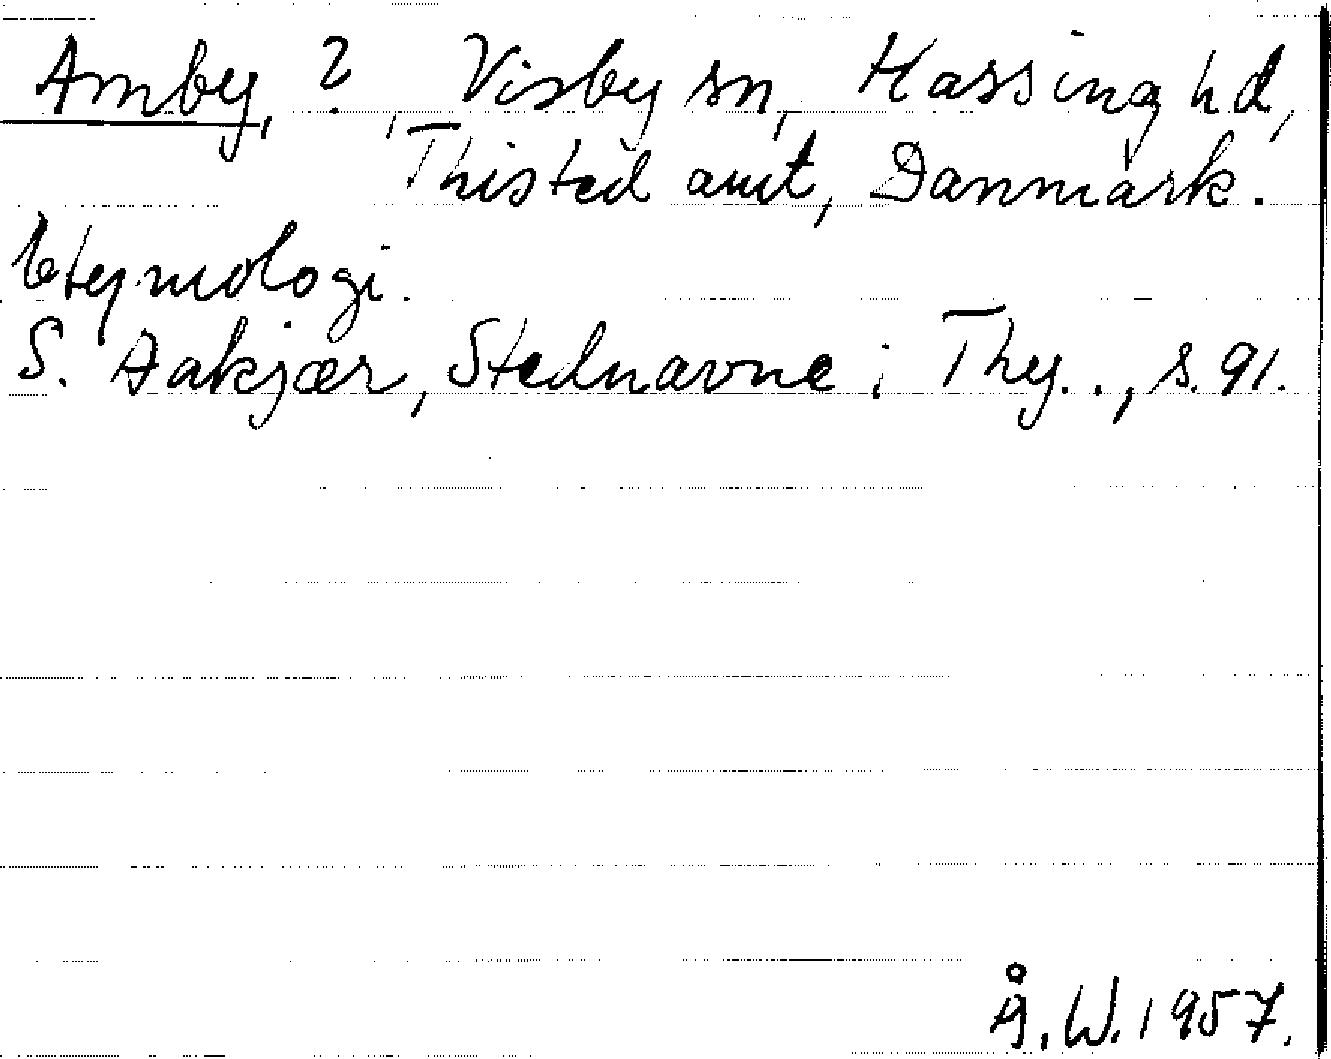 Amby, ?, Visby sn, Hassing hd,
Thisted amt, Danmark.
Etymologi.
S. Aakjær, Stednavne i Thy.., s. 91.
Å. W. 1957.